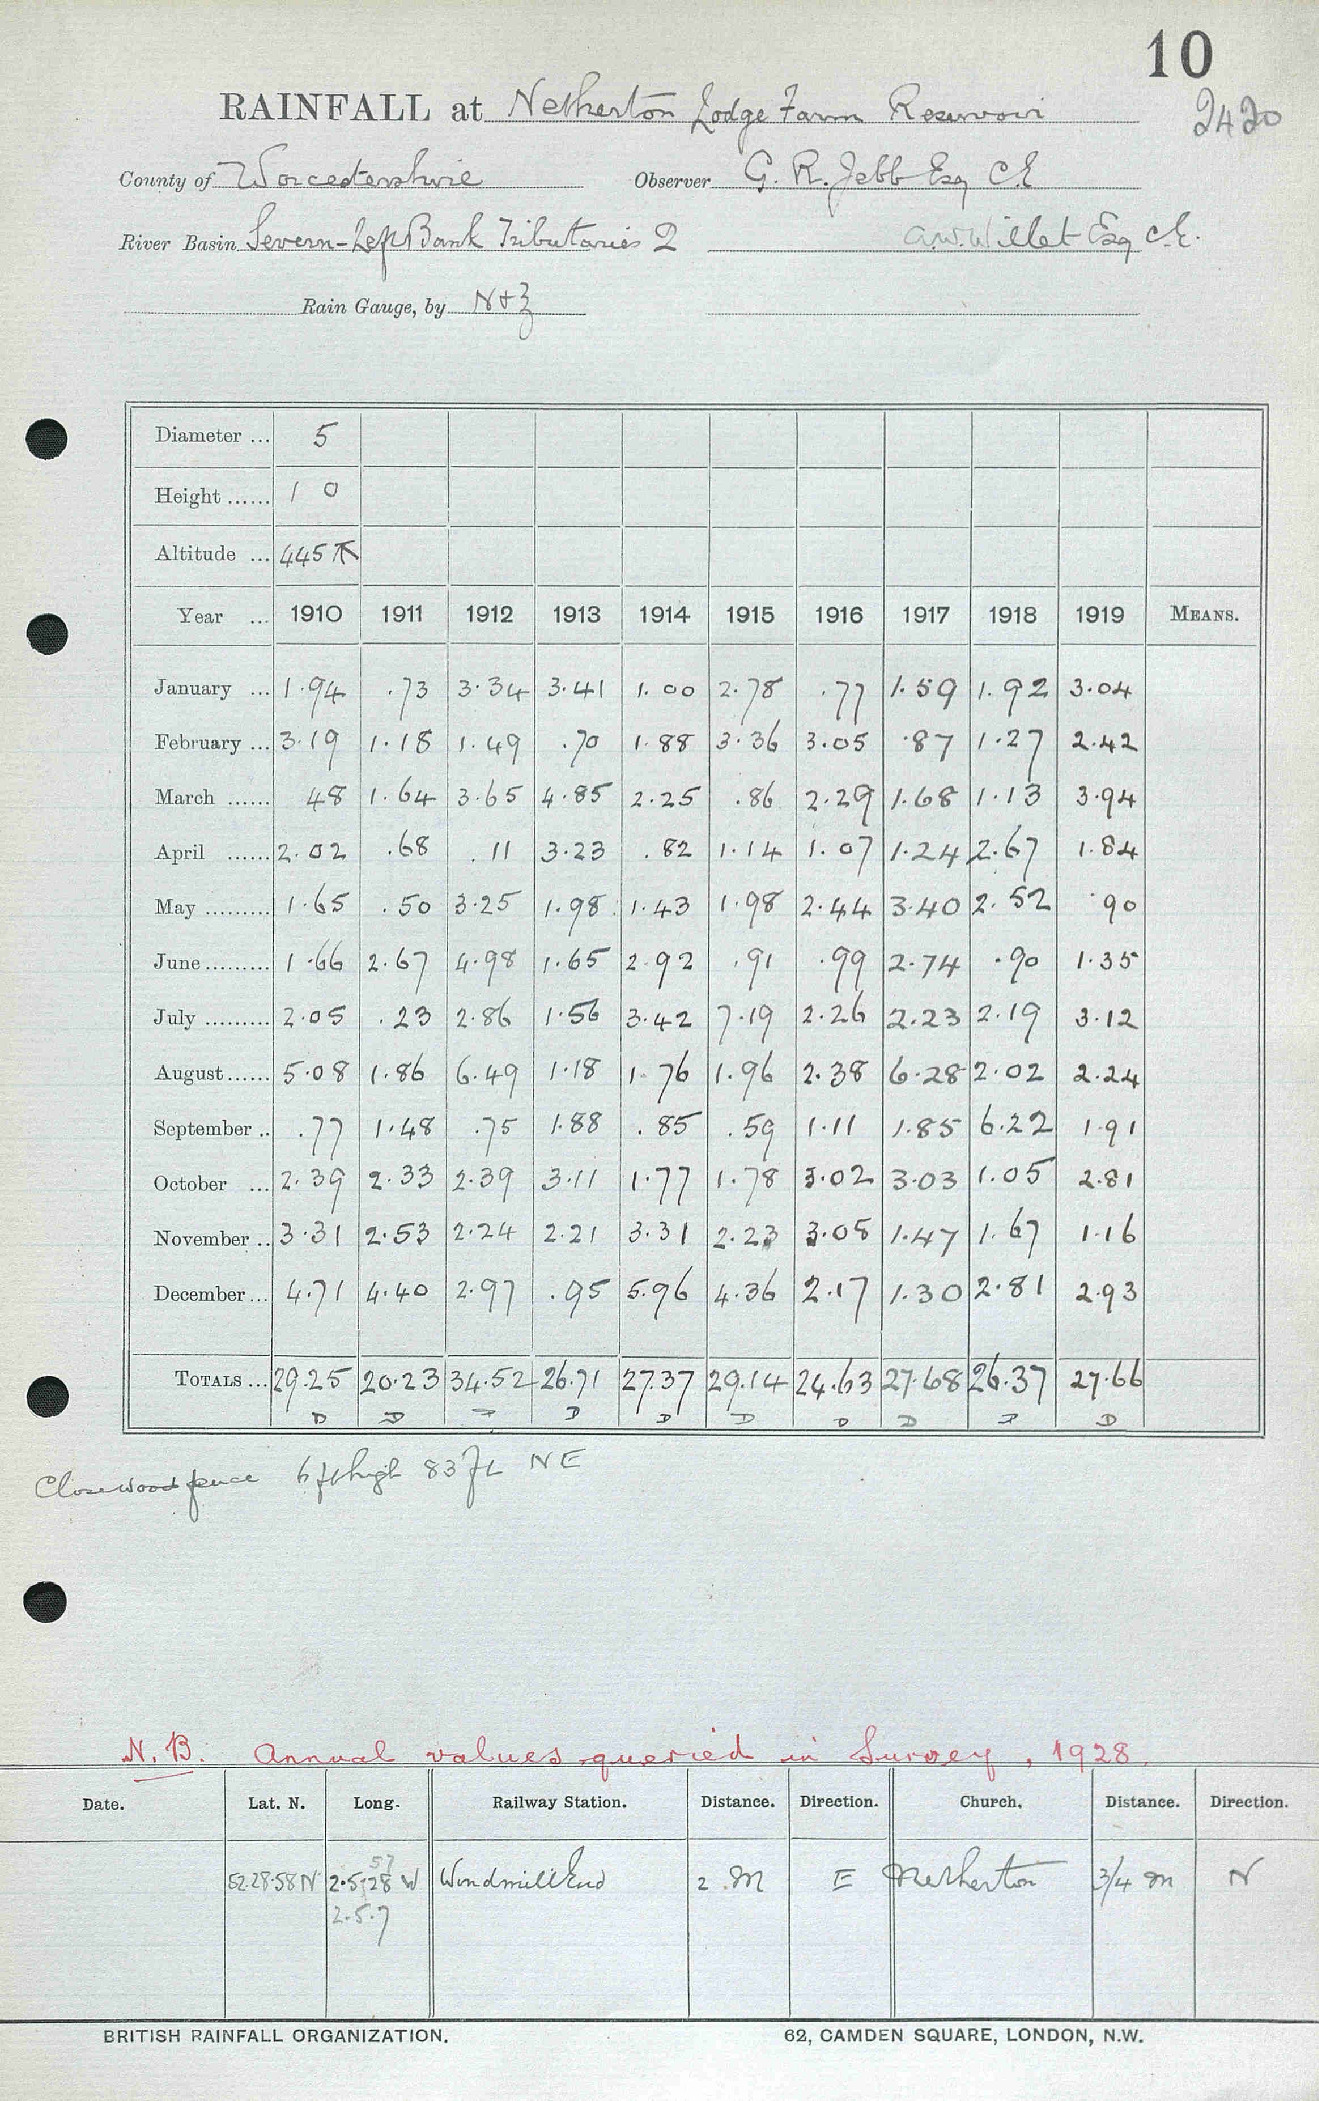 10
RAINFALL at Netherton Lodge Farm Reservoir
2420
County of Worcestershire Observer G. R. Jebb Esq C.E
River Basin Severn-Left Bank Tributaries 2 A.W. Willet Esq C.E.
Rain Gauge, by N+Z
Diameter ... 5
Height ...... 1 0
Altitude ... 445
Year ... 1910 1911 1912 1913 1914 1915 1916 1917 1918 1919 MEANS.
January ... 1.94 .73 3.34 3.41 1.00 2.78 .77 1.59 1.92 3.04
February ... 3.19 1.18 1.49 .70 1.88 3.36 3.05 .87 1.27 2.42
March ...... 48 1.64 3.65 4.85 2.25 .86 2.29 1.68 1.13 3.94
April ...... 2.02 .68 .11 3.23 .82 1.14 1.07 1.24 2.67 1.84
May ......... 1.65 .50 3.25 1.98 1.43 1.98 2.44 3.40 2.52 .90
June ......... 1.66 2.67 4.98 1.65 2.92 .91 .99 2.74 .90 1.35
July ......... 2.05 .23 2.86 1.56 3.42 7.19 2.26 2.23 2.19 3.12
August ...... 5.08 1.86 6.49 1.18 1.76 1.96 2.38 6.28 2.02 2.24
September .. .77 1.48 .75 1.88 .85 .59 1.11 1.85 6.22 1.91
October ... 2.39 2.33 2.39 3.11 1.77 1.78 3.02 3.03 1.05 2.81
November .. 3.31 2.53 2.24 2.21 3.31 2.23 3.08 1.47 1.67 1.16
December ... 4.71 4.40 2.97 .95 5.96 4.36 2.17 1.30 2.81 2.93
TOTALS ... 29.25 20.23 34.52 26.71 27.37 29.14 24.63 27.68 26.37 27.66
D D D D D D D D D D
Close wood fence 6 ft high 83 ft NE
N.B. Annual values queried in Survey, 1928.
Date. Lat. N. Long. Railway Station. Distance. Direction. Church. Distance. Direction.
57
52.28.58 N 2.5.28 W Windmill End 2 m E Netherton 3/4 m N
2.5.7
BRITISH RAINFALL ORGANIZATION. 62, CAMDEN SQUARE, LONDON, N.W.